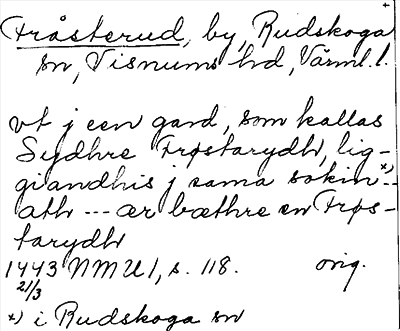 Fråsterud, by, Rudskoga
sn, Visnums hd, Värml. l.
vt j een gard, som kallas
Sydhre Frøstarydh, lig-
giandhis j sama sokin x) --
ath --- ær bæthre en Frøs-
tarydh
1443 NMU 1, s. 118. orig.
21/3
x) i Rudskoga sn